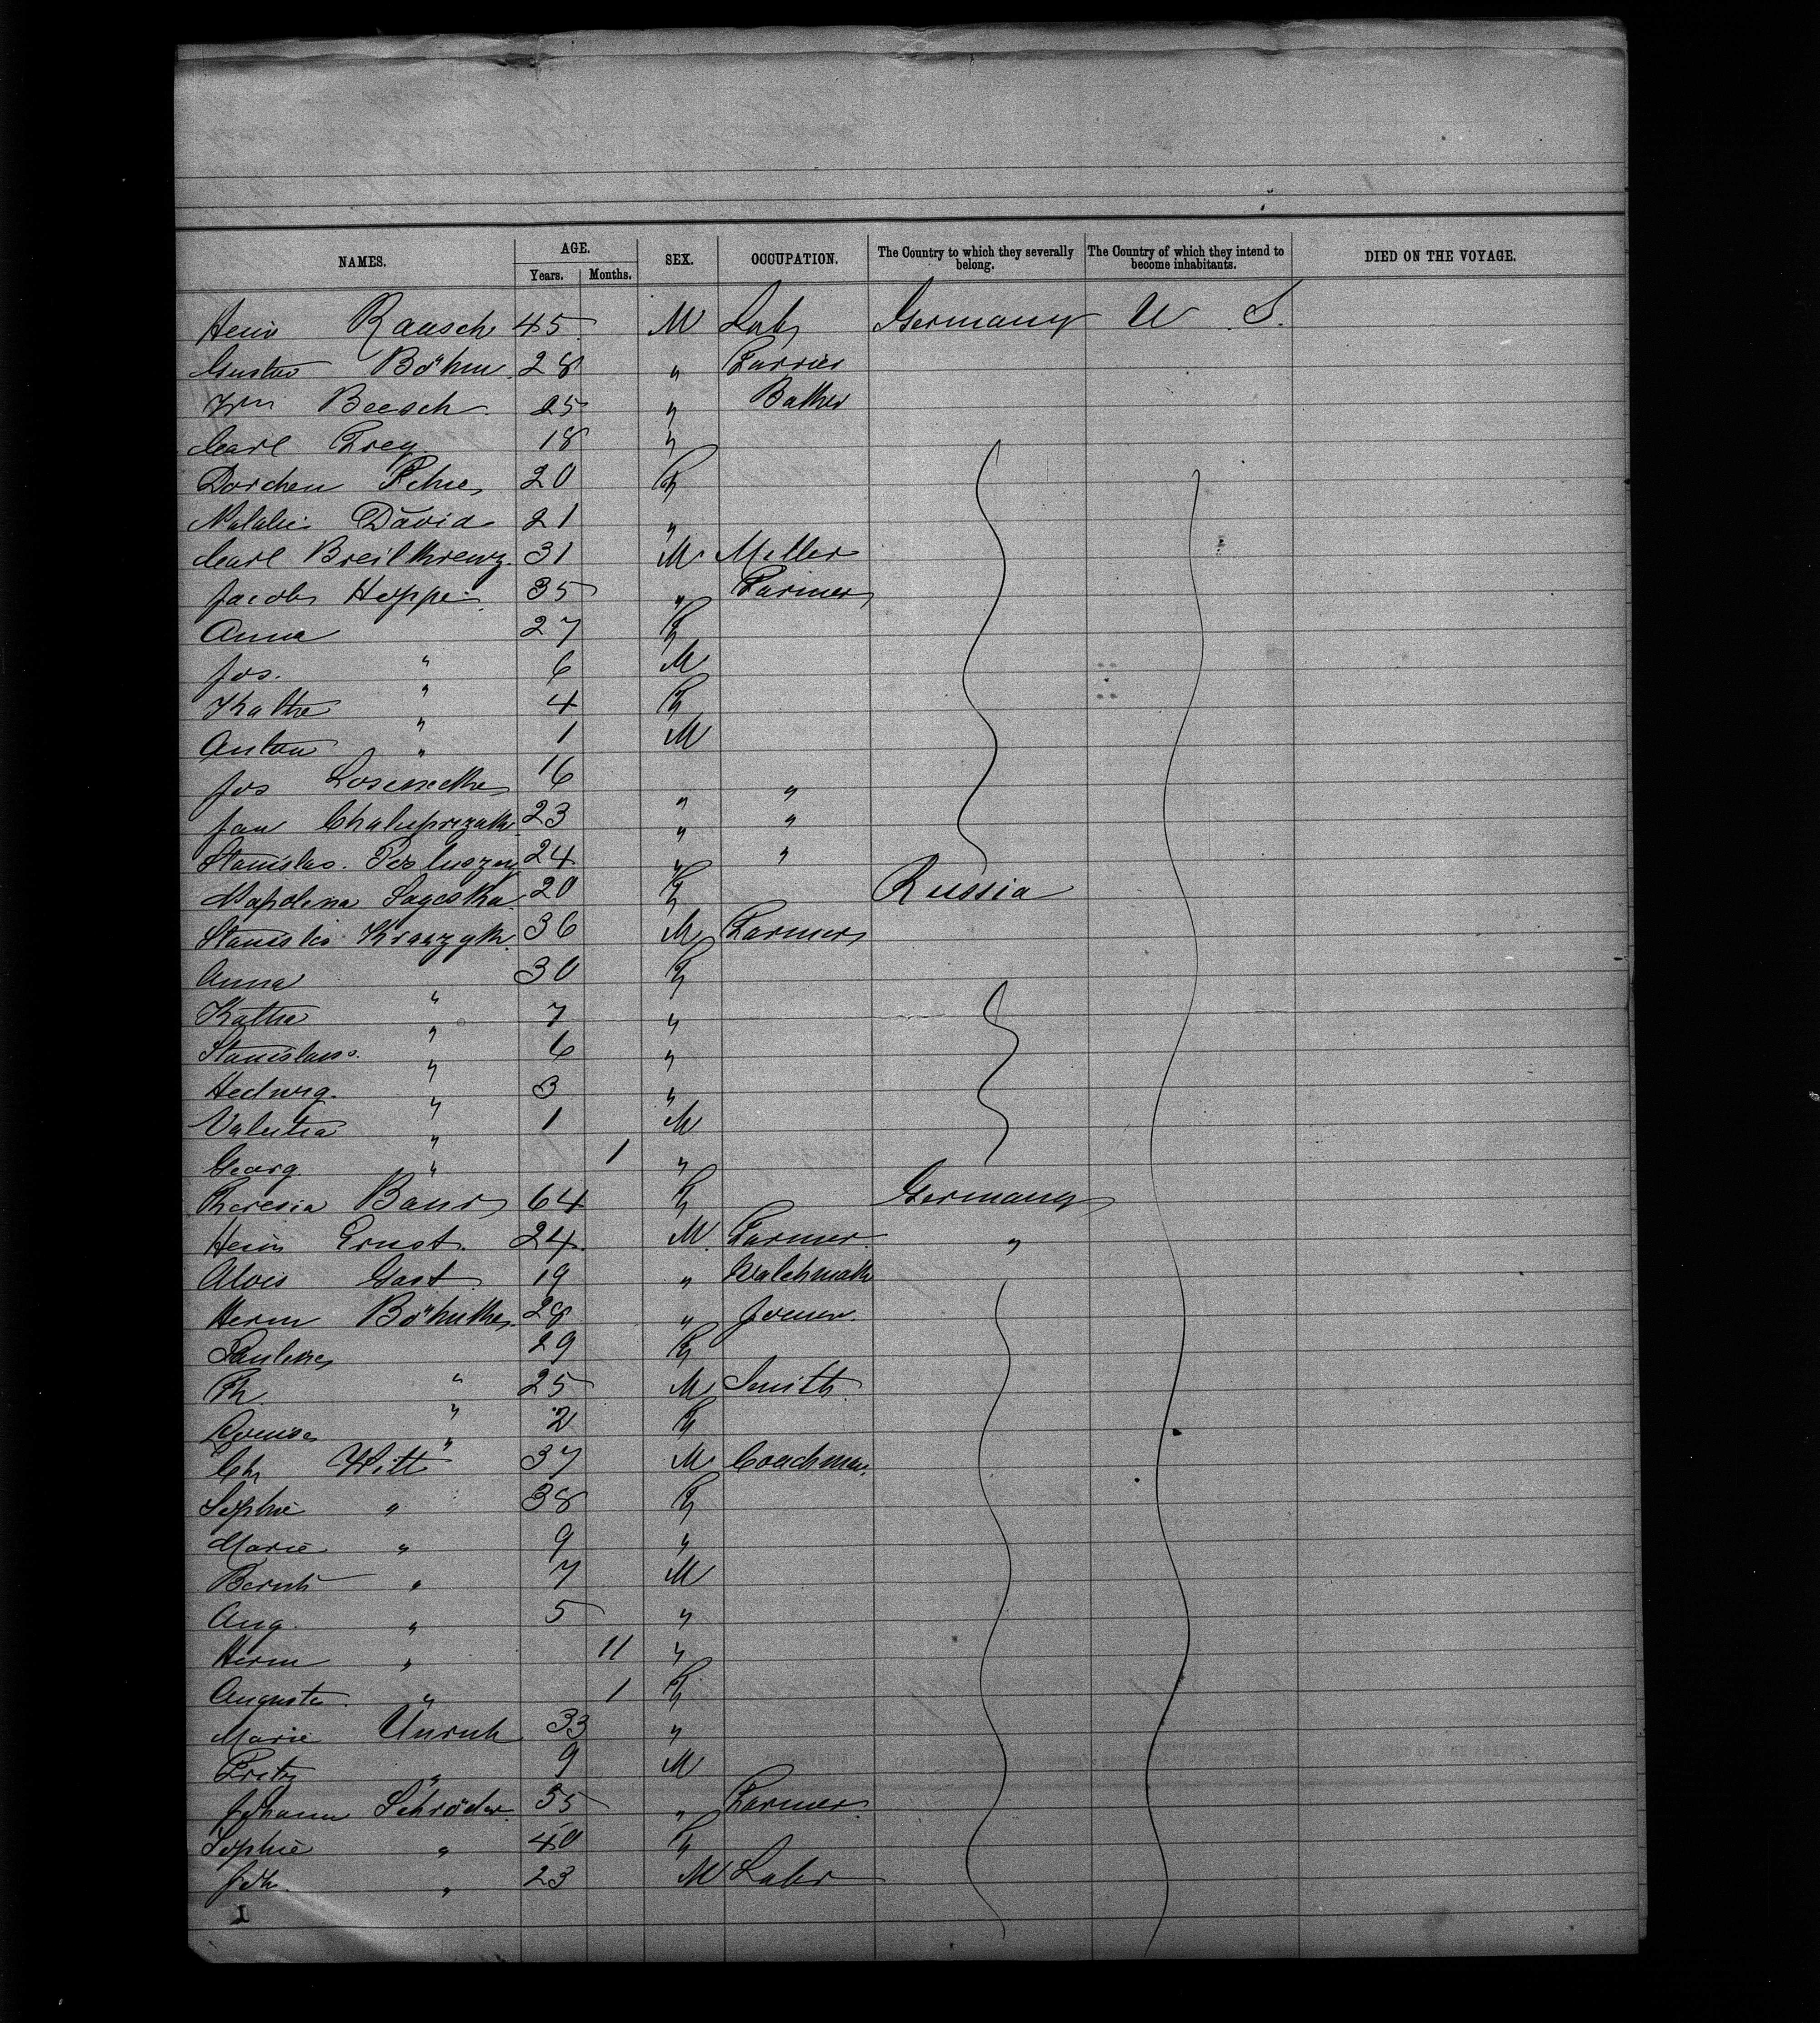 NAMES. AGE. SEX. OCCUPATION. The Country to which they severally belong. The Country of which they intend to become inhabitants. DIED ON THE VOYAGE.
Years. Months.
Heinr Rausch 45 M Labr Germany U. S.
Gustav Böhm 28 " Farrier
Wm Beesch 25 " Baker
Carl Frey 18 "
Dorchen 20 F
Natalie David 21 "
Carl Breilkreuz 31 M Miller
Jacob Hoppe 35 " Farmer
Anna " 27 F
Jos. " 6 M
Kathe " 4 F
Anton " 1 M
Jos 16 " "
Jan 23 " "
Stanislas. 24 " "
20 F Russia
Stanisls Krawzyk 36 M Farmer
Anna " 30 F
Kathe " 7 "
Stanislaus. " 6 "
Hedwig. " 3 "
" 1 M
Georg. " 1 "
Theresia Baur 64 F Germany
Heinr Ernst. 24 M Farmer "
Alois Gast 19 " Watchmak
Herm Böhnke 28 " Joiner.
Pauline " 29 F
Th. " 25 M Smith
Louise " 2 F
Chr Witt 37 M Coachman.
Sophie " 38 F
Marie " 9 "
Bernh " 7 M
Aug. " 5 "
Herm " 11 "
Auguste. " 1 F
Marie Unruh 33 "
Fritz " 9 M
Johann Schröder 55 " Farmer
Sophie " 40 F
Joh. " 23 M Labr
I